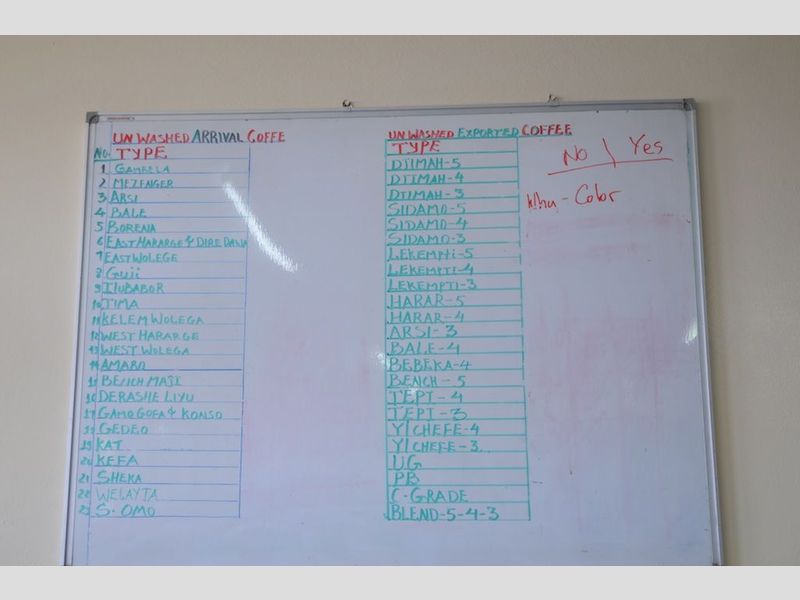 UNWASHED ARRIVAL COFFE
NO. TYPE
1 GAMBELA
2 MEZENGER
3 ARSI
4 BALE
5 BORENA
6 EAST HARARGE & DIRE DAWA
7 EAST WOLEGE
8 GUJI
9 ILUBABOR
10 JIMA
11 KELEM WOLEGA
12 WEST HARARGE
13 WEST WOLEGA
14 AMARO
15 BENCH MAJI
16 DERASHE LIYU
17 GAMO GOFA & KONSO
18 GEDEO
19 KAT
20 KEFA
21 SHEKA
22 WELAYTA
23 S. OMO
UNWASHED EXPORTED COFFEE
TYPE
DJIMAH-5
DJIMAH-4
DJIMAH-3
SIDAMO-5
SIDAMO-4
SIDAMO-3
LEKEMPTI-5
LEKEMPTI-4
LEKEMPTI-3
HARAR-5
HARAR-4
ARSI-3
BALE-4
BEBEKA-4
BENCH-5
TEPI-4
TEPI-3
Y/CHEFE-4
Y/CHEFE-3
UG
PB
C-GRADE
BLEND-5-4-3
No | Yes
- Color